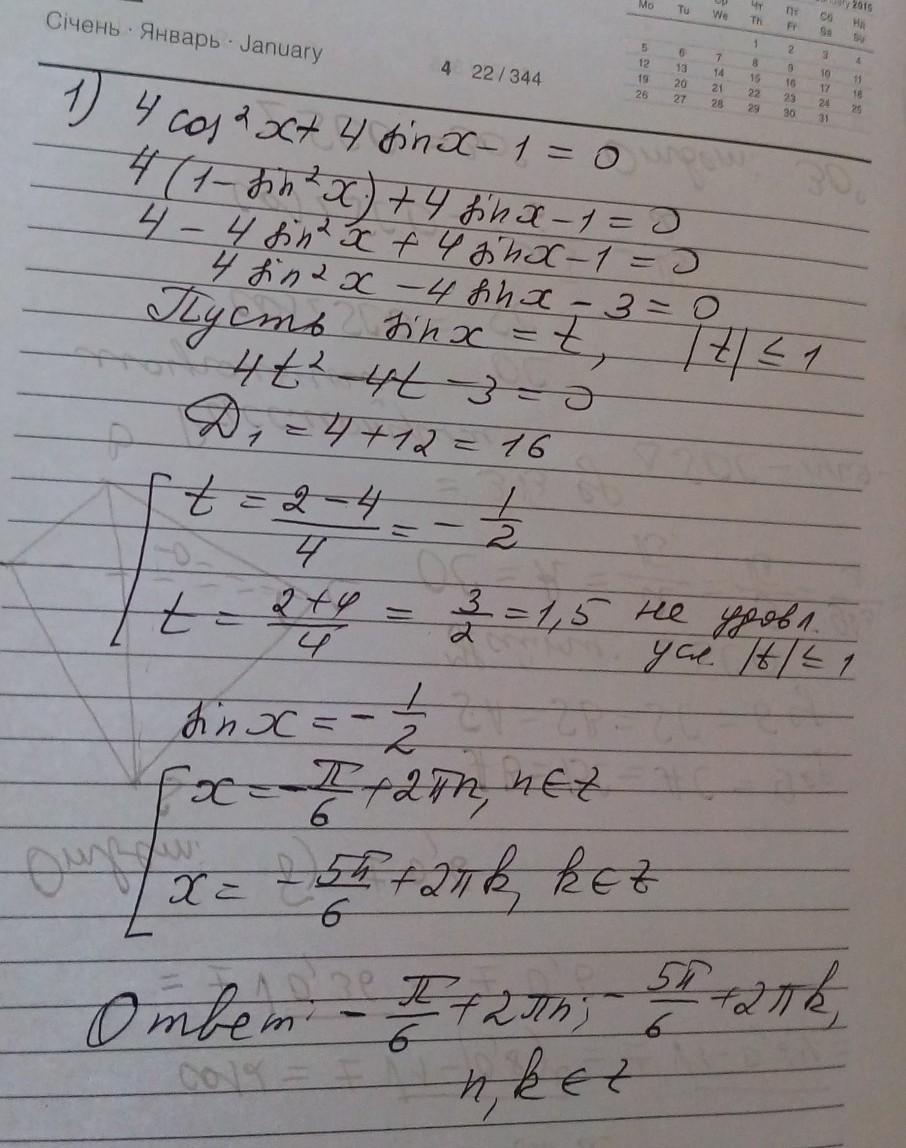 Січень · Январь · January
4 22 / 344
January 2015
Mo Tu We Чт Th Пт Fr Сб Sa Нд Su
1 2 3 4
5 6 7 8 9 10 11
12 13 14 15 16 17 18
19 20 21 22 23 24 25
26 27 28 29 30 31
1) 4 cos² x + 4 sin x - 1 = 0
4 (1 - sin² x) + 4 sin x - 1 = 0
4 - 4 sin² x + 4 sin x - 1 = 0
4 sin² x - 4 sin x - 3 = 0
Пусть sin x = t, |t| ≤ 1
4t² - 4t - 3 = 0
Д₁ = 4 + 12 = 16
t = (2 - 4)/4 = - 1/2
t = (2 + 4)/4 = 3/2 = 1,5 не удовл.
усл. |t| ≤ 1
sin x = - 1/2
x = - π/6 + 2πn, n ∈ z
x = - 5π/6 + 2πk, k ∈ z
Ответ: - π/6 + 2πn; - 5π/6 + 2πk,
n, k ∈ z